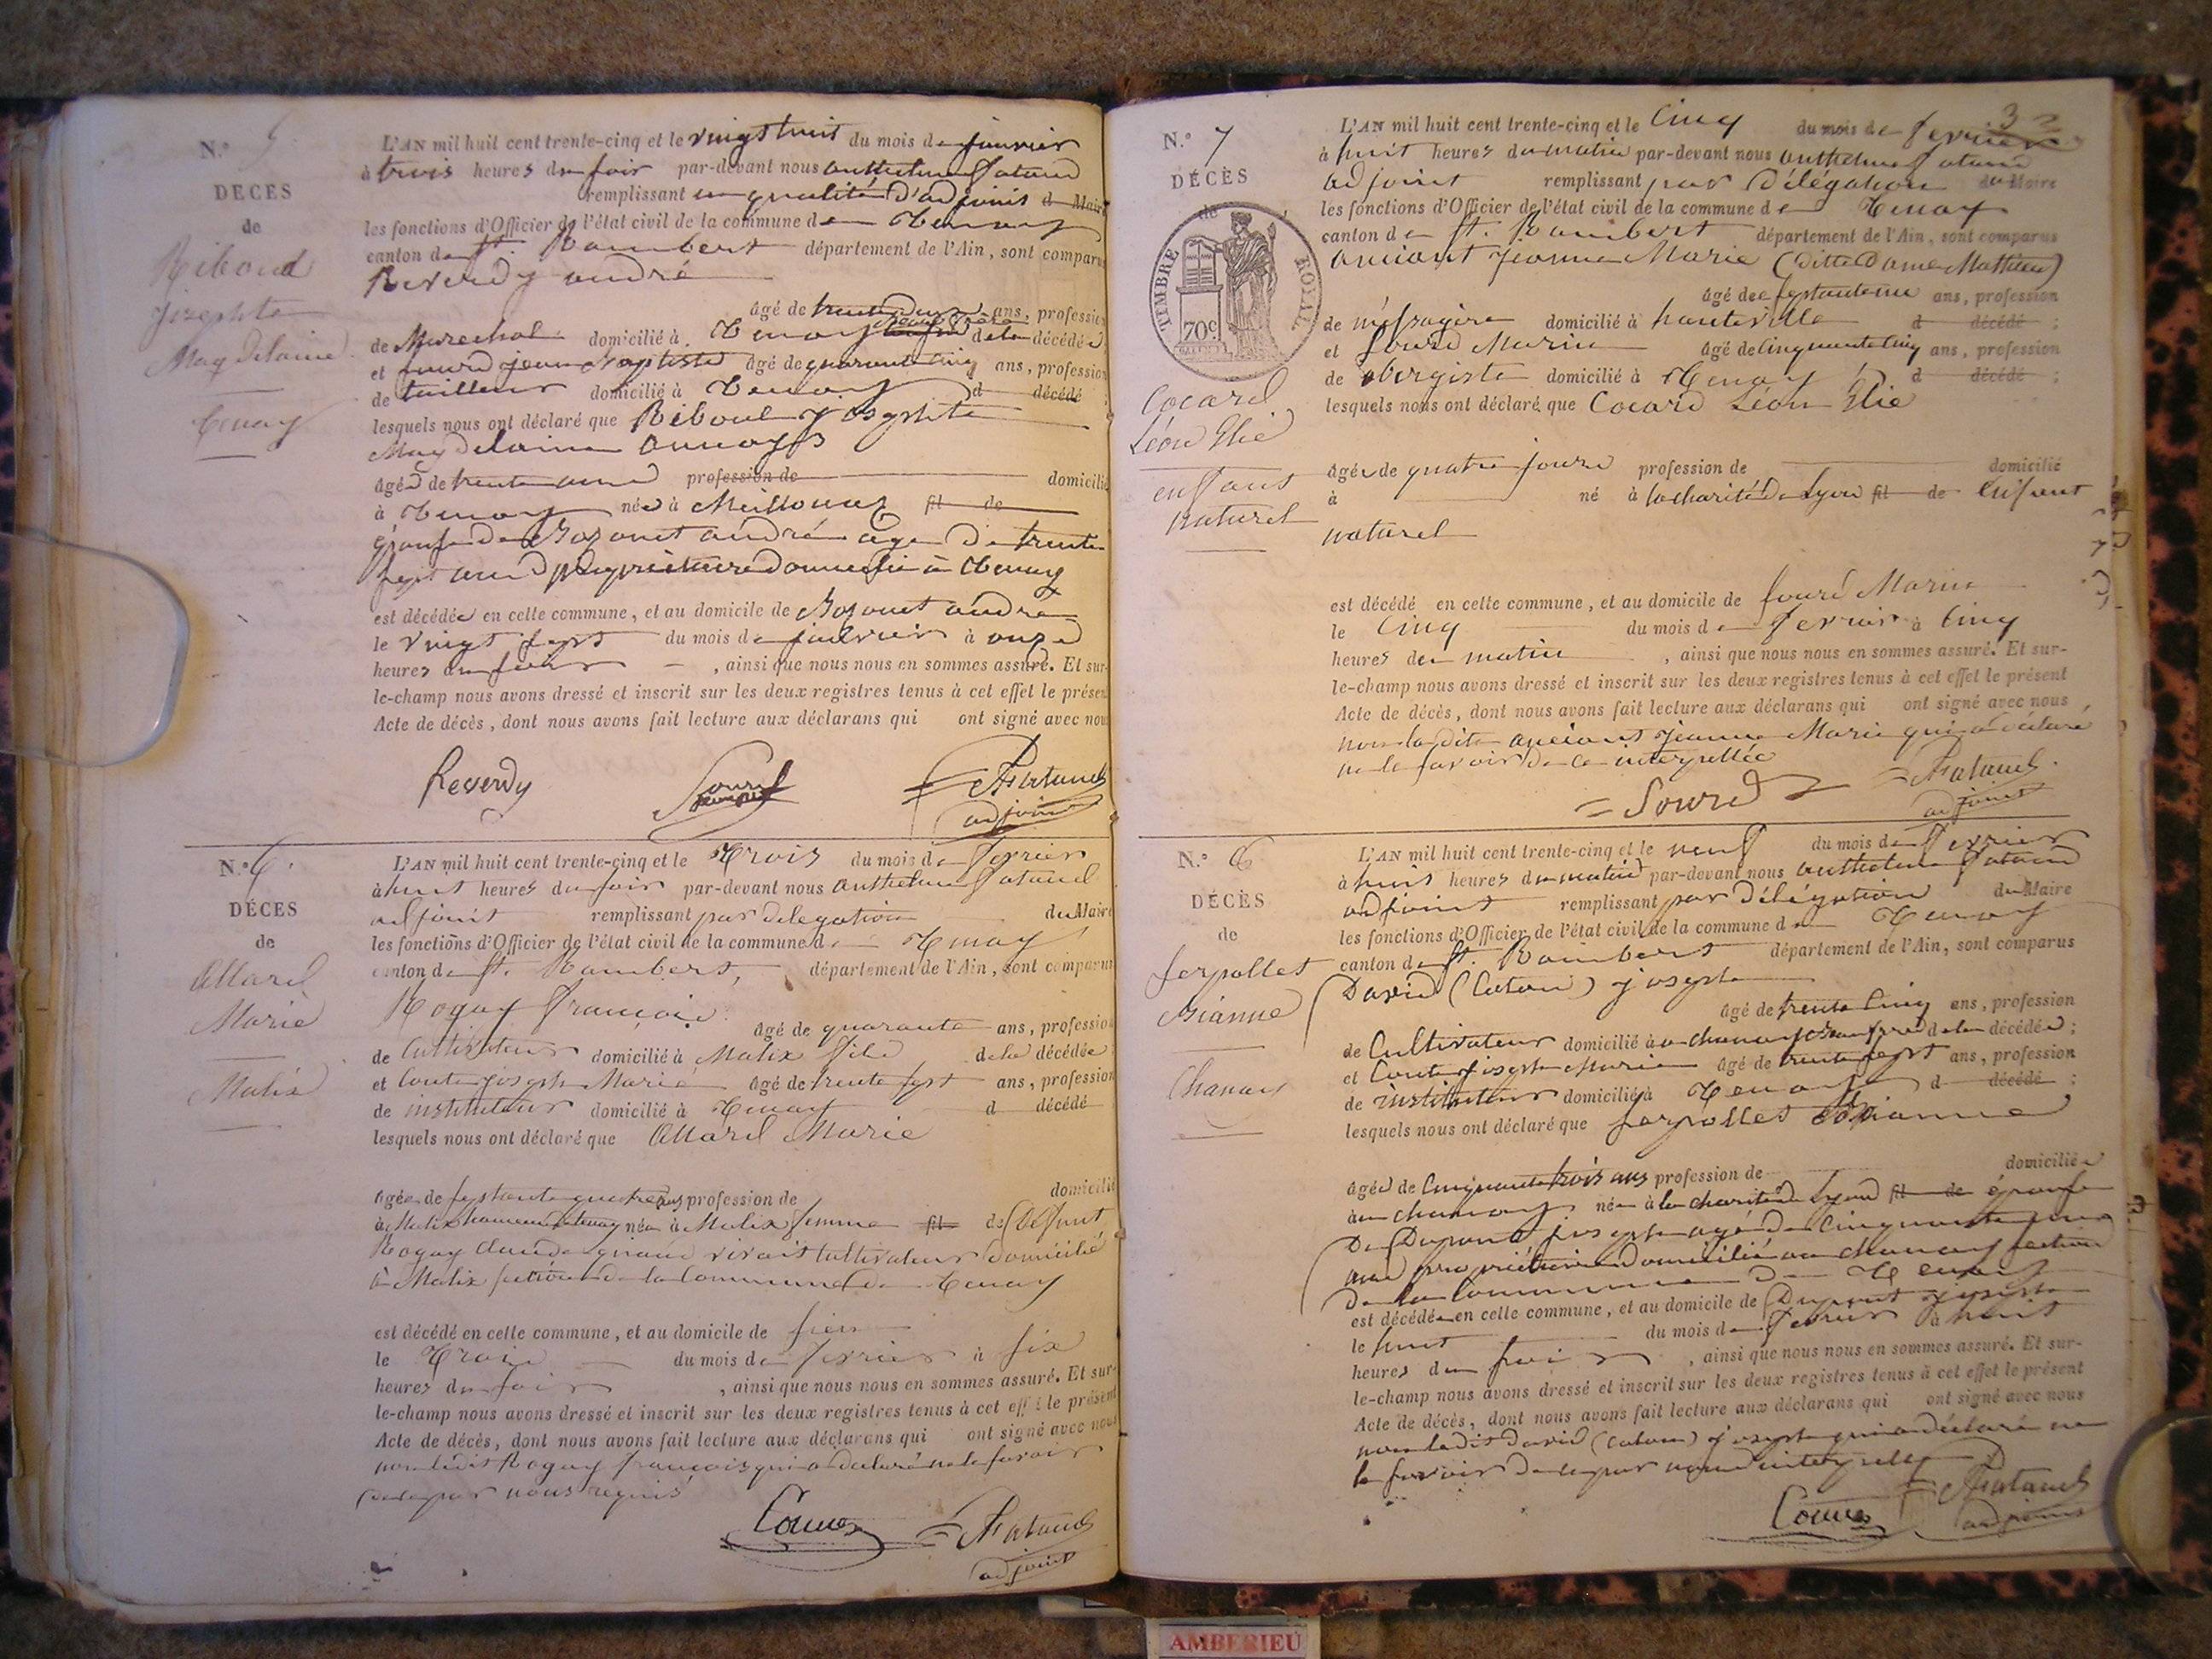 N.º 5
DÉCES
de
Riboud
josephte
Magdelaine
Tenay
L'AN mil huit cent trente-cinq et le vingt huit du mois de janvier
à trois heures du soir par-devant nous anthelme Satand
remplissant en qualité d'adjoint d Maire
les fonctions d'Officier de l'état civil de la commune de Tenay
canton de St. Rambert département de l'Ain, sont comparus
Reverdy andré
âgé de trente deux ans, profession
de Marechal domicilié à Tenay beau frère de la décédée
et Sourd jean Baptiste âgé de quarante cinq ans, profession
de tailleur domicilié à Tenay d décédé
lesquels nous ont déclaré que Riboud josephte
Magdelaine
âgée de trente ans profession de domicilié
à Tenay née à Meillonaz fil de
épouse de Bozonet andré age de trente
sept ans propriétaire domicilié à Tenay
est décédée en cette commune, et au domicile de Bozonet andré
le vingt sept du mois de janvier à onze
heures du soir, ainsi que nous nous en sommes assuré. Et sur-
le-champ nous avons dressé et inscrit sur les deux registres tenus à cet effet le présent
Acte de décès, dont nous avons fait lecture aux déclarans qui ont signé avec nous
Reverdy Sourd Satand
adjoint
N.º 6
DÉCES
de
Allard
Marie
Malix
L'AN mil huit cent trente-cinq et le Trois du mois de fevrier
à huit heures du soir par-devant nous anthelme Satand
adjoint remplissant par delegation du Maire
les fonctions d'Officier de l'état civil de la commune de Tenay
canton de St. Rambert, département de l'Ain, sont comparus
Rogay françois
âgé de quarante ans, profession
de Cultivateur domicilié à Malix fils de la décédée
et Coute joseph Marie âgé de trente sept ans, profession
de instituteur domicilié à Tenay d décédé
lesquels nous ont déclaré que Allard Marie
âgée de septante quatre ans profession de domicilié
à Malix hameau de tenay née à Malix femme fil de Defunt
Rogay Claude quand vivait Cultivateur domicilié
à Malix section de la Commune de Tenay
est décédé en cette commune, et au domicile de sien
le Trois du mois de fevrier à six
heures du soir, ainsi que nous nous en sommes assuré. Et sur-
le-champ nous avons dressé et inscrit sur les deux registres tenus à cet effet le présent
Acte de décès, dont nous avons fait lecture aux déclarans qui ont signé avec nous
non ledit Rogay françois qui a déclaré ne le savoir
de ce par nous requis
Coute Satand
adjoint
3
N.º 7
DÉCÈS
de
TIMBRE ROYAL
70c.
Cocard
Léon Elie
enfant
naturel
L'AN mil huit cent trente-cinq et le Cinq du mois de fevrier
à huit heures du matin par-devant nous anthelme Satand
adjoint remplissant par Délégation du Maire
les fonctions d'Officier de l'état civil de la commune de Tenay
canton de St. Rambert département de l'Ain, sont comparus
anciant jeanne Marie (Ditte Dame Mathieu)
âgé de septante un ans, profession
de messagère domicilié à hauteville d décédé ;
et Sourd Marin âgé de cinquante cinq ans, profession
de obergiste domicilié à Tenay d décédé ;
lesquels nous ont déclaré que Cocard Léon Elie
âgé de quatre jours profession de domicilié
à né à la charité de Lyon fil de Enfant
naturel
est décédé en cette commune, et au domicile de Sourd Marin
le Cinq du mois de fevrier à Cinq
heures du matin, ainsi que nous nous en sommes assuré. Et sur-
le-champ nous avons dressé et inscrit sur les deux registres tenus à cet effet le présent
Acte de décès, dont nous avons fait lecture aux déclarans qui ont signé avec nous
non la dite anciant jeanne Marie qui a déclaré
ne le savoir de ce interpellée
Sourd Satand
adjoint
N.º 8
DÉCÈS
de
serpollet
Bianne
Chanay
L'AN mil huit cent trente-cinq et le neuf du mois de fevrier
à huit heures du matin par-devant nous anthelme Satand
adjoint remplissant par Délégation du Maire
les fonctions d'Officier de l'état civil de la commune de Tenay
canton de St. Rambert département de l'Ain, sont comparus
David (Caton) joseph
âgé de trente Cinq ans, profession
de Cultivateur domicilié à chanay de la décédée ;
et Coute joseph Marie âgé de trente sept ans, profession
de instituteur domicilié à Tenay d décédé ;
lesquels nous ont déclaré que serpollet Bianne
âgée de Cinquante trois ans profession de domiciliée
au chanay née à la charité de Lyon fil de épouse
De Dupont joseph agé de Cinquante
ans propriétaire domicilié au chanay section
de la Commune de Tenay
est décédée en cette commune, et au domicile de Dupont joseph
le huit du mois de fevrier à huit
heures du soir, ainsi que nous nous en sommes assuré. Et sur-
le-champ nous avons dressé et inscrit sur les deux registres tenus à cet effet le présent
Acte de décès, dont nous avons fait lecture aux déclarans qui ont signé avec nous
non ledit David (Caton) joseph qui a déclaré ne
le savoir de ce par nous interpellé
Coute Satand
adjoint
AMBERIEU